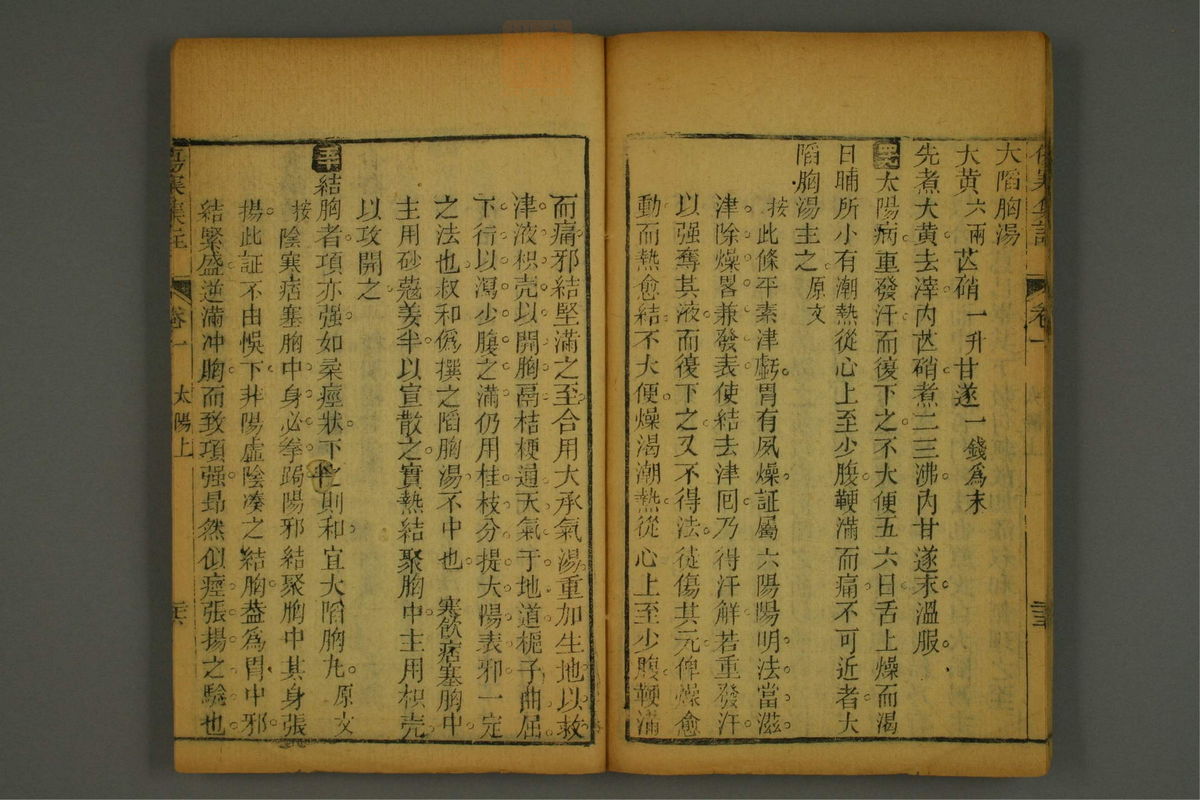 傷寒集註 卷一
大陷胸湯
大黃六兩 芒硝一升 甘遂一錢為末
先煮大黃去滓內芒硝煮二三沸內甘遂末溫服
太陽病重發汗而復下之不大便五六日舌上燥而渴
日晡所小有潮熱從心上至少腹鞕滿而痛不可近者大
陷胸湯主之 原文
按此條平素津虧胃有夙燥証屬六陽陽明法當滋
津除燥畧兼發表使結去津回乃得汗解若重發汗
以强奪其液而復下之又不得法徒傷其元俾燥愈
動而熱愈結不大便燥渴潮熱從心上至少腹鞕滿
而痛邪結堅滿之至合用大承氣湯重加生地以救
津液枳壳以開胸鬲桔梗通天氣于地道梔子曲屈
下行以瀉少腹之滿仍用桂枝分提太陽表邪一定
之法也叔和僞撰之陷胸湯不中也 寒飲痞塞胸中
主用砂蔻姜半以宣散之實熱結聚胸中主用枳壳
以攻開之
結胸者項亦强如桑痙狀下之則和宜大陷胸丸 原文
按陰寒痞塞胸中身必拳跼陽邪結聚胸中其身張
揚此証不由悞下井陽虛陰凑之結胸葢為胃中邪
結緊盛逆滿冲胸而致項强昂然似痙張揚之驗也
傷寒集註 卷一 太陽上